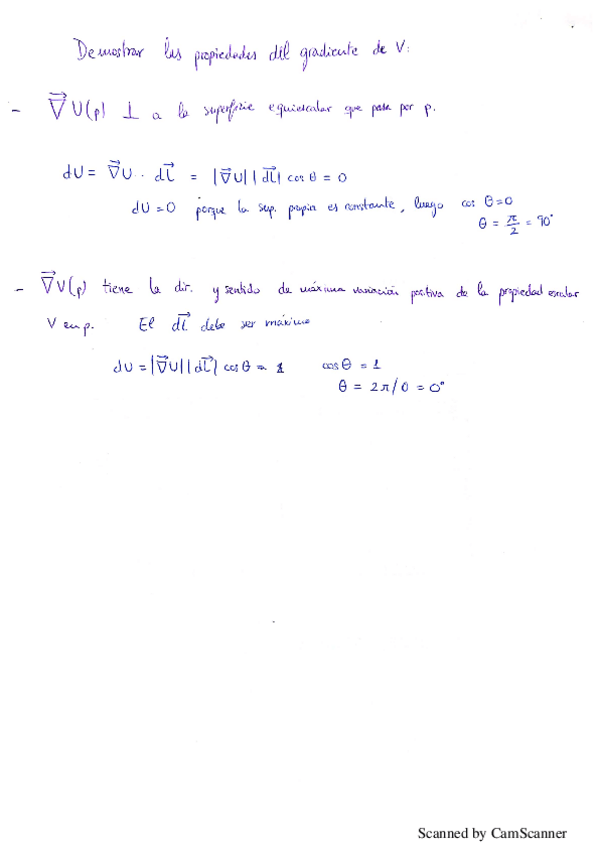 Demostrar las propiedades del gradiente de V:
- ∇⃗U(p) ⊥ a la superficie equiescalar que pasa por p.
dU = ∇⃗U · dl⃗ = |∇⃗U| |dl⃗| cos θ = 0
dU=0 porque la sup. propia es constante, luego cos θ=0
θ = π/2 = 90°
- ∇⃗V(p) tiene la dir. y sentido de máxima variación positiva de la propiedad escalar
V en p. El dl⃗ debe ser máximo
dU = |∇⃗U| |dl⃗| cos θ = 1 cos θ = 1
θ = 2π/0 = 0°
Scanned by CamScanner